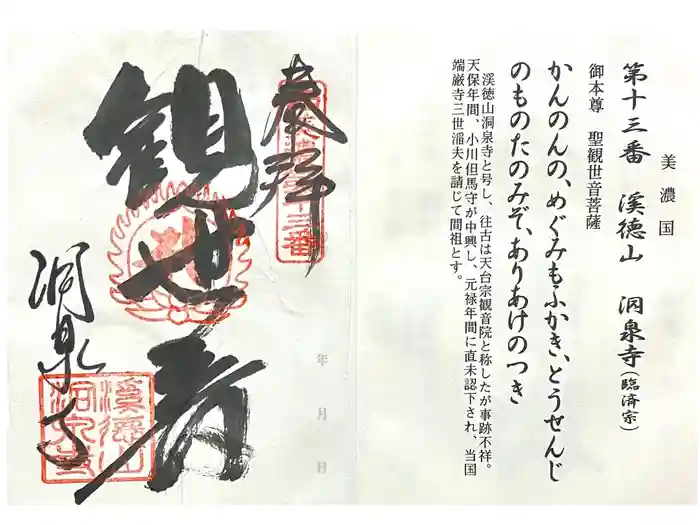 美濃国
第十三番　溪徳山　洞泉寺（臨済宗）
御本尊　聖観世音菩薩
かんのんの、めぐみもふかき、とうせんじ
のものたのみぞ、ありあけのつき
溪徳山洞泉寺と号し、往古は天台宗観音院と称したが事跡不祥。
天保年間、小川但馬守が中興し、元禄年間に直末認下され、当国
端厳寺三世湽夫を請じて開祖とす。
奉拝
十三番
観世音
洞泉寺
溪徳山
洞泉寺
年　月　日